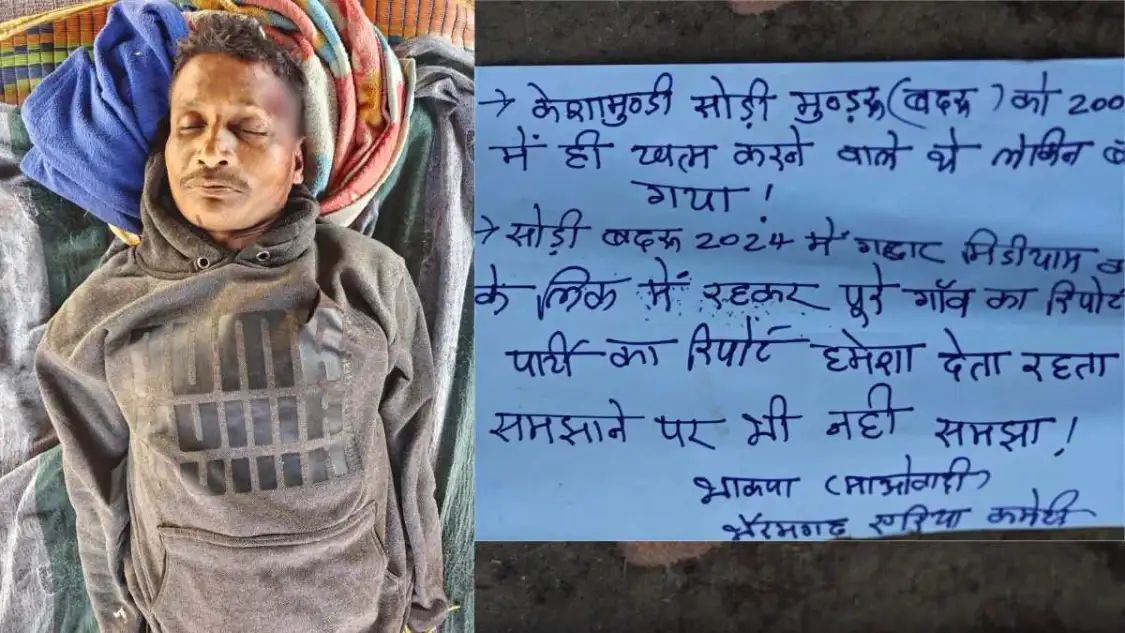 → केशामुण्डी सोड़ी मुण्ड़रू (बदरू) को 200
में ही खत्म करने वाले थे लेकिन
गया !
→ सोड़ी बदरू 2024 में गद्दार मिडीयाम
के लिंक में रहकर पूरे गॉव का रिपोर्ट
पार्टी का रिपोर्ट हमेशा देता रहता
समझाने पर भी नही समझा !
भाकपा (माओवादी)
भैरमगढ़ एरिया कमेटी